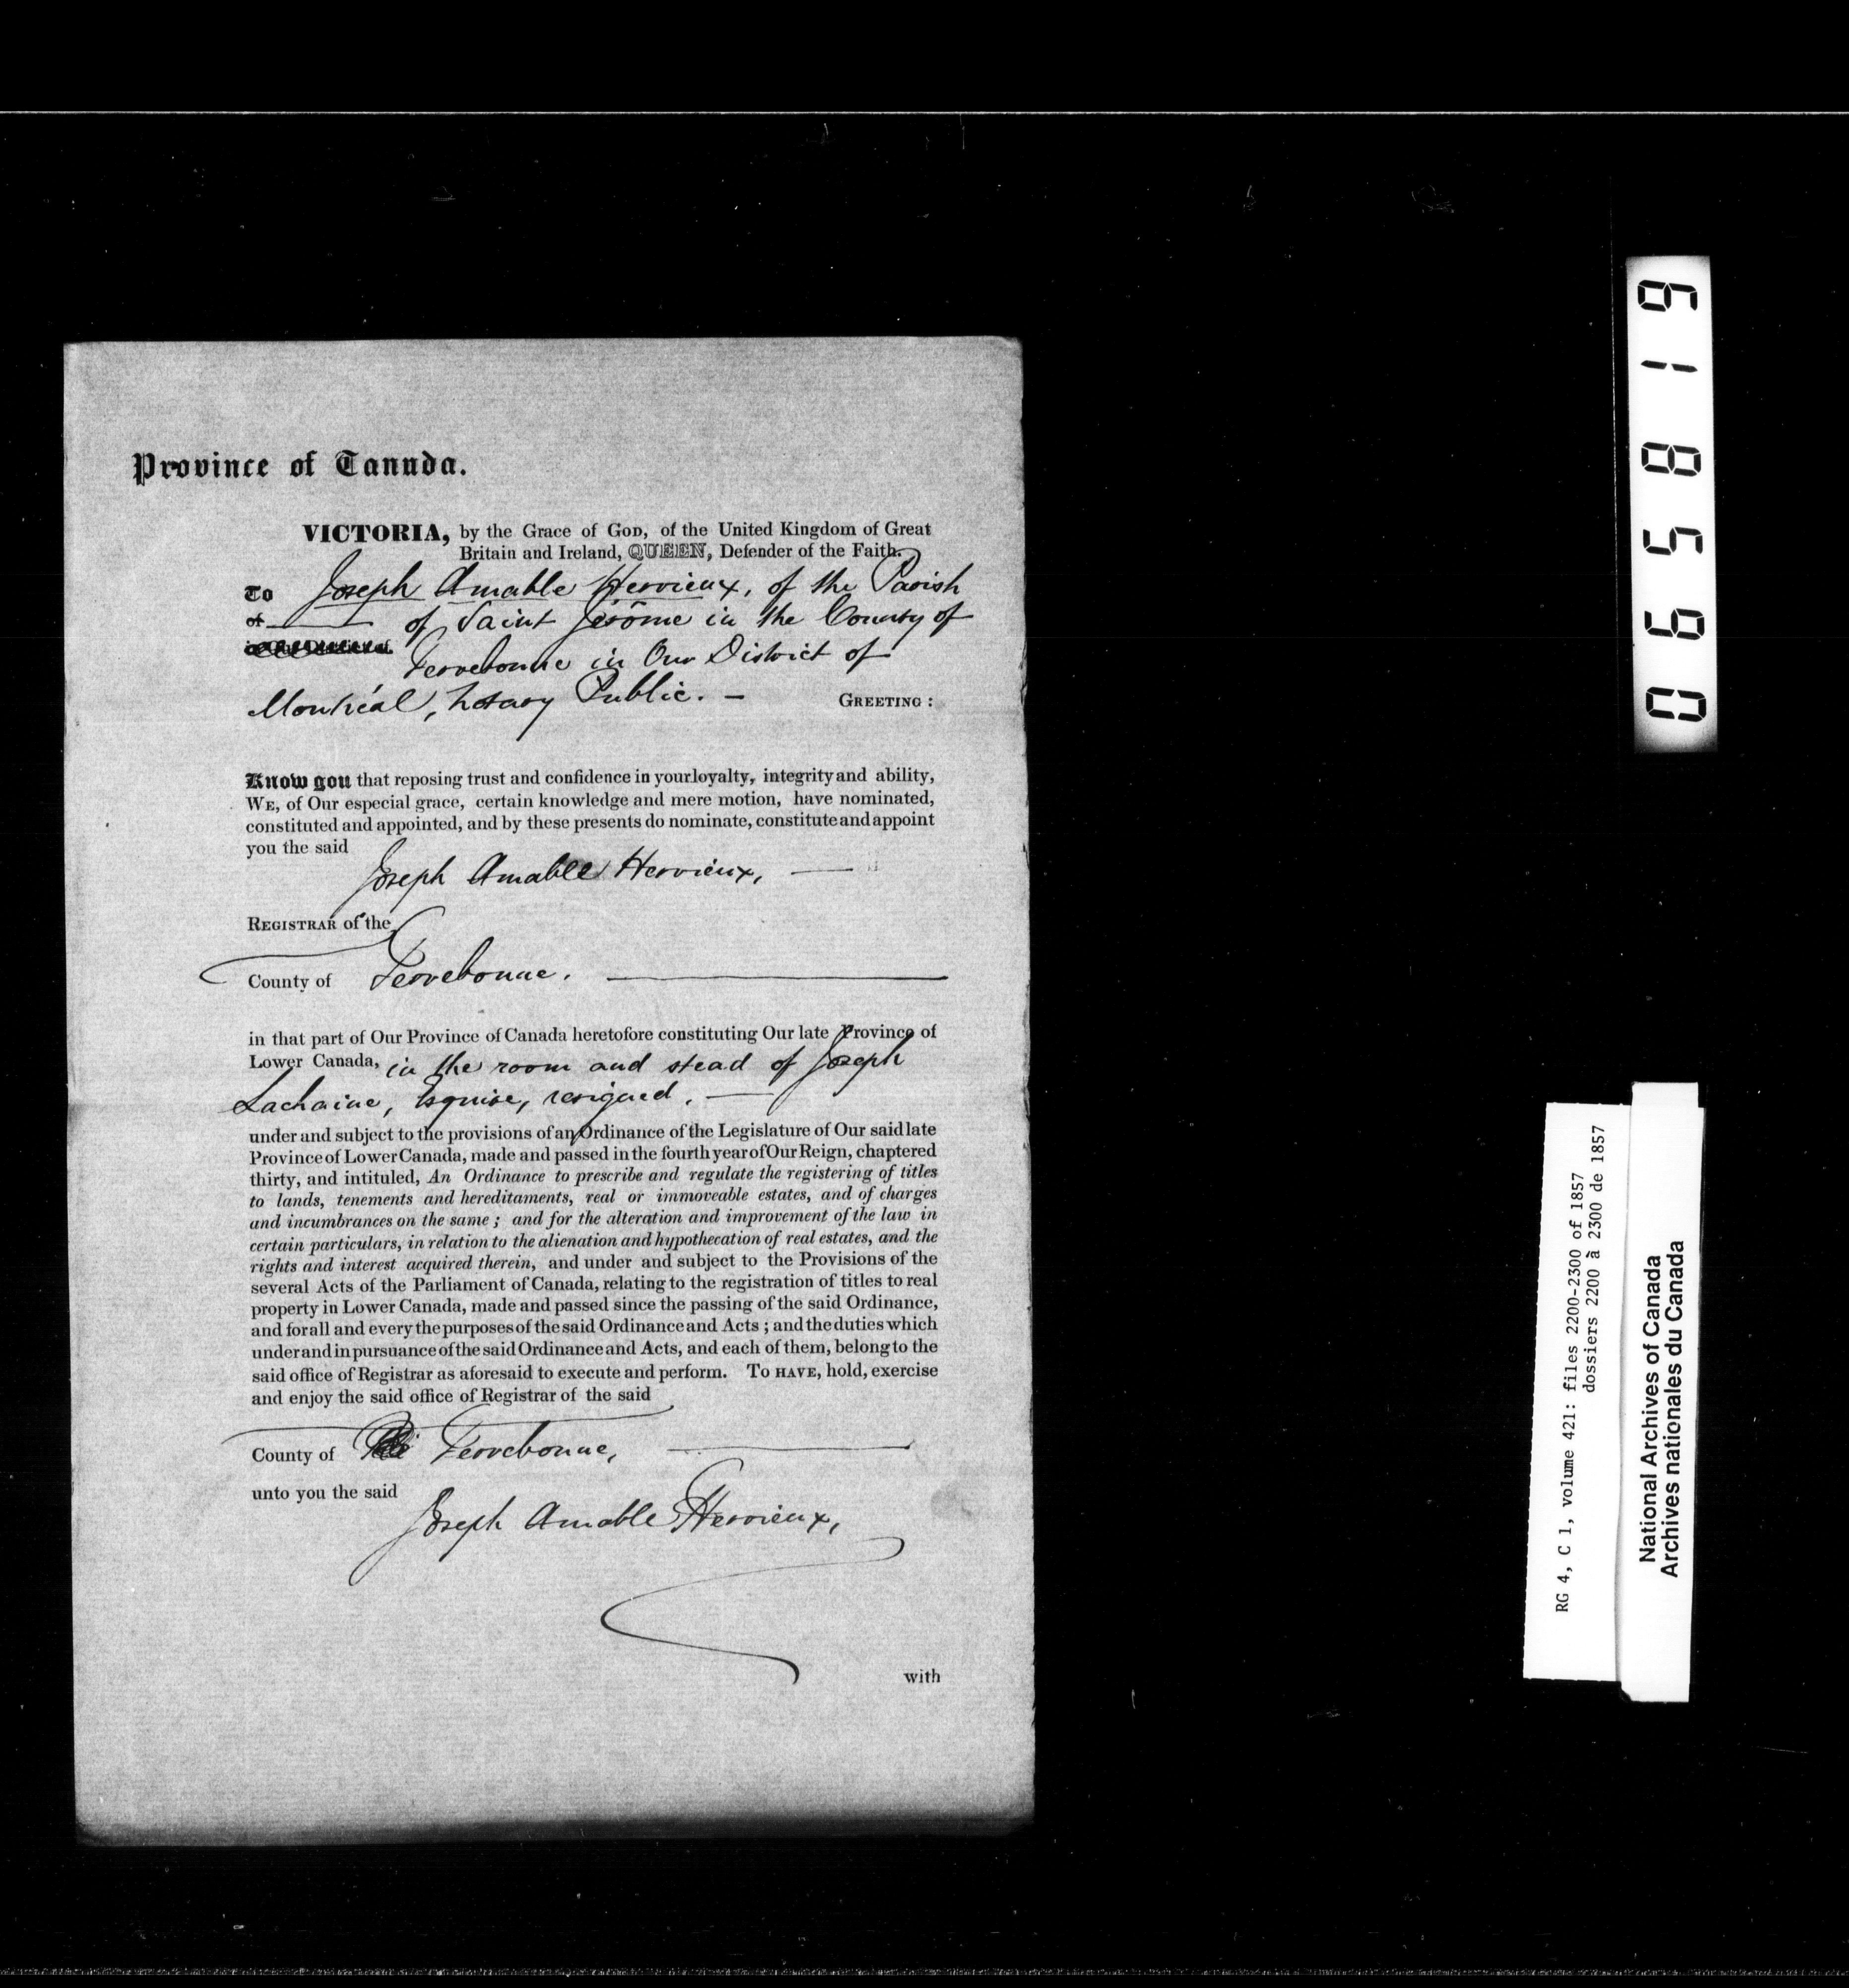 Province of Canada.
VICTORIA, by the Grace of GOD, of the United Kingdom of Great
Britain and Ireland, QUEEN, Defender of the Faith.
To Joseph Amable Hervieux, of the Parish
of of Saint Jérôme in the County of
Terrebonne in Our District of
Montréal, Notary Public. — GREETING :
Know you that reposing trust and confidence in your loyalty, integrity and ability,
WE, of Our especial grace, certain knowledge and mere motion, have nominated,
constituted and appointed, and by these presents do nominate, constitute and appoint
you the said
Joseph Amable Hervieux, —
REGISTRAR of the
County of Terrebonne. —
in that part of Our Province of Canada heretofore constituting Our late Province of
Lower Canada, in the room and stead of Joseph
Lachaine, Esquire, resigned. —
under and subject to the provisions of an Ordinance of the Legislature of Our said late
Province of Lower Canada, made and passed in the fourth year of Our Reign, chaptered
thirty, and intituled, An Ordinance to prescribe and regulate the registering of titles
to lands, tenements and hereditaments, real or immoveable estates, and of charges
and incumbrances on the same ; and for the alteration and improvement of the law in
certain particulars, in relation to the alienation and hypothecation of real estates, and the
rights and interest acquired therein, and under and subject to the Provisions of the
several Acts of the Parliament of Canada, relating to the registration of titles to real
property in Lower Canada, made and passed since the passing of the said Ordinance,
and for all and every the purposes of the said Ordinance and Acts ; and the duties which
under and in pursuance of the said Ordinance and Acts, and each of them, belong to the
said office of Registrar as aforesaid to execute and perform. To HAVE, hold, exercise
and enjoy the said office of Registrar of the said
County of Terrebonne, —
unto you the said
Joseph Amable Hervieux,
with
065819
RG 4, C 1, volume 421: files 2200-2300 of 1857
dossiers 2200 à 2300 de 1857
National Archives of Canada
Archives nationales du Canada